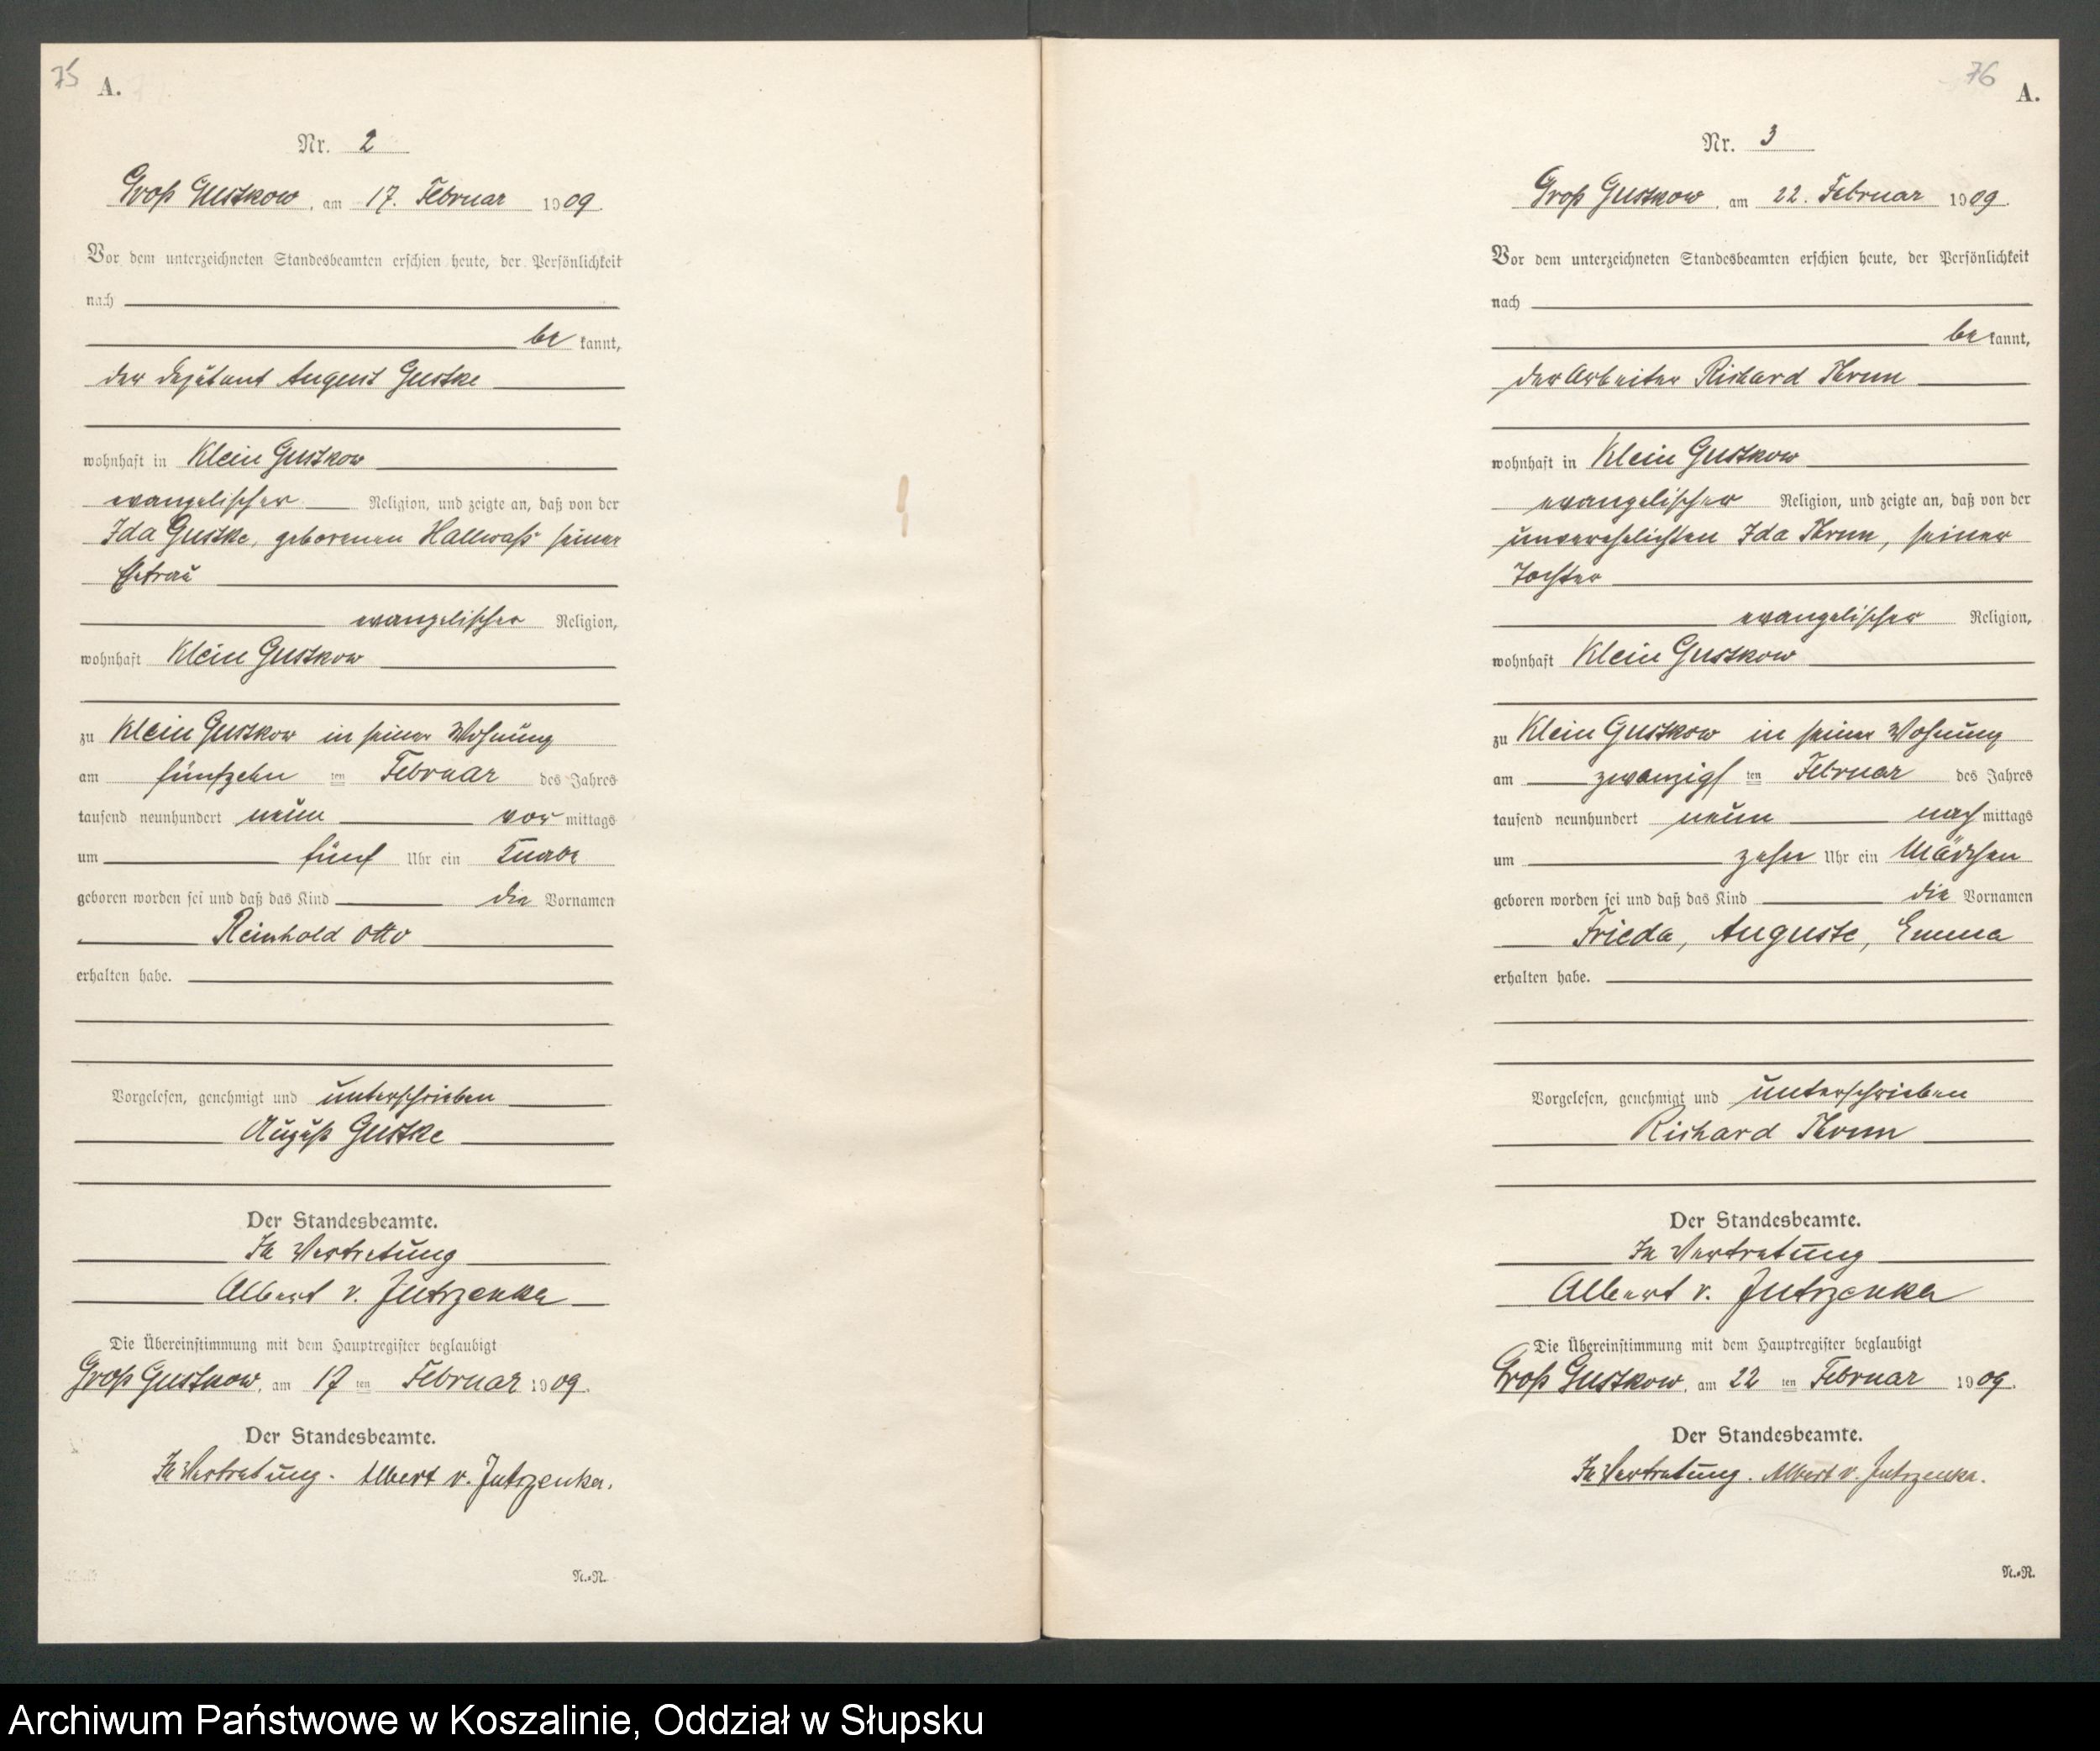 75
A.
Nr. 2
Groß Gustkow, am 17. Februar 1909.
Vor dem unterzeichneten Standesbeamten erschien heute, der Persönlichkeit
nach
be kannt,
der Deputant August Gustke
wohnhaft in Klein Gustkow
evangelischer Religion, und zeigte an, daß von der
Ida Gustke, geborenen Hallwaß seiner
Ehefrau
evangelischer Religion,
wohnhaft Klein Gustkow
zu Klein Gustkow in seiner Wohnung
am fünfzehn ten Februar des Jahres
tausend neunhundert neun vor mittags
um fünf Uhr ein Knabe
geboren worden sei und daß das Kind die Vornamen
Reinhold Otto
erhalten habe.
Vorgelesen, genehmigt und unterschrieben
August Gustke
Der Standesbeamte.
In Vertretung
Albert v. Jutrzenka
Die Übereinstimmung mit dem Hauptregister beglaubigt
Groß Gustkow, am 17 ten Februar 1909.
Der Standesbeamte.
In Vertretung. Albert v. Jutrzenka.
N.=R.
76
A.
Nr. 3
Groß Gustkow, am 22. Februar 1909.
Vor dem unterzeichneten Standesbeamten erschien heute, der Persönlichkeit
nach
be kannt,
der Arbeiter Richard
wohnhaft in Klein Gustkow
evangelischer Religion, und zeigte an, daß von der
unverehelichten Ida seiner
Tochter
evangelischer Religion,
wohnhaft Klein Gustkow
zu Klein Gustkow in seiner Wohnung
am zwanzigs ten Februar des Jahres
tausend neunhundert neun nach mittags
um zehn Uhr ein Mädchen
geboren worden sei und daß das Kind die Vornamen
Frieda, Auguste, Emma
erhalten habe.
Vorgelesen, genehmigt und unterschrieben
Richard
Der Standesbeamte.
In Vertretung
Albert v. Jutrzenka
Die Übereinstimmung mit dem Hauptregister beglaubigt
Groß Gustkow, am 22 ten Februar 1909.
Der Standesbeamte.
In Vertretung. Albert v. Jutrzenka.
N.=R.
Archiwum Państwowe w Koszalinie, Oddział w Słupsku